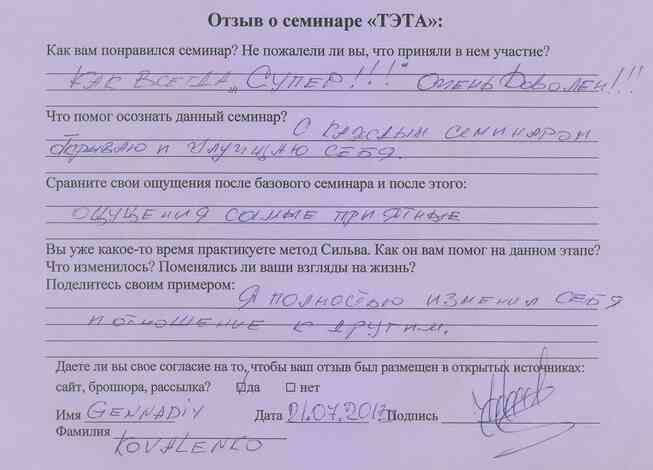 Отзыв о семинаре «ТЭТА»:
Как вам понравился семинар? Не пожалели ли вы, что приняли в нем участие?
КАК ВСЕГДА „СУПЕР!!!" ОЧЕНЬ ДОВОЛЕН!!!
Что помог осознать данный семинар?
С КАЖДЫМ СЕМИНАРОМ
и УЛУЧШАЮ СЕБЯ.
Сравните свои ощущения после базового семинара и после этого:
ОЩУЩЕНИЯ САМЫЕ ПРИЯТНЫЕ
Вы уже какое-то время практикуете метод Сильва. Как он вам помог на данном этапе?
Что изменилось? Поменялись ли ваши взгляды на жизнь?
Поделитесь своим примером:
Я ПОЛНОСТЬЮ ИЗМЕНИЛ СЕБЯ
И ОТНОШЕНИЕ К ДРУГИМ.
Даете ли вы свое согласие на то, чтобы ваш отзыв был размещен в открытых источниках:
сайт, брошюра, рассылка? да нет
Имя GENNADIY Дата 21.07.2017 Подпись
Фамилия KOVALENKO